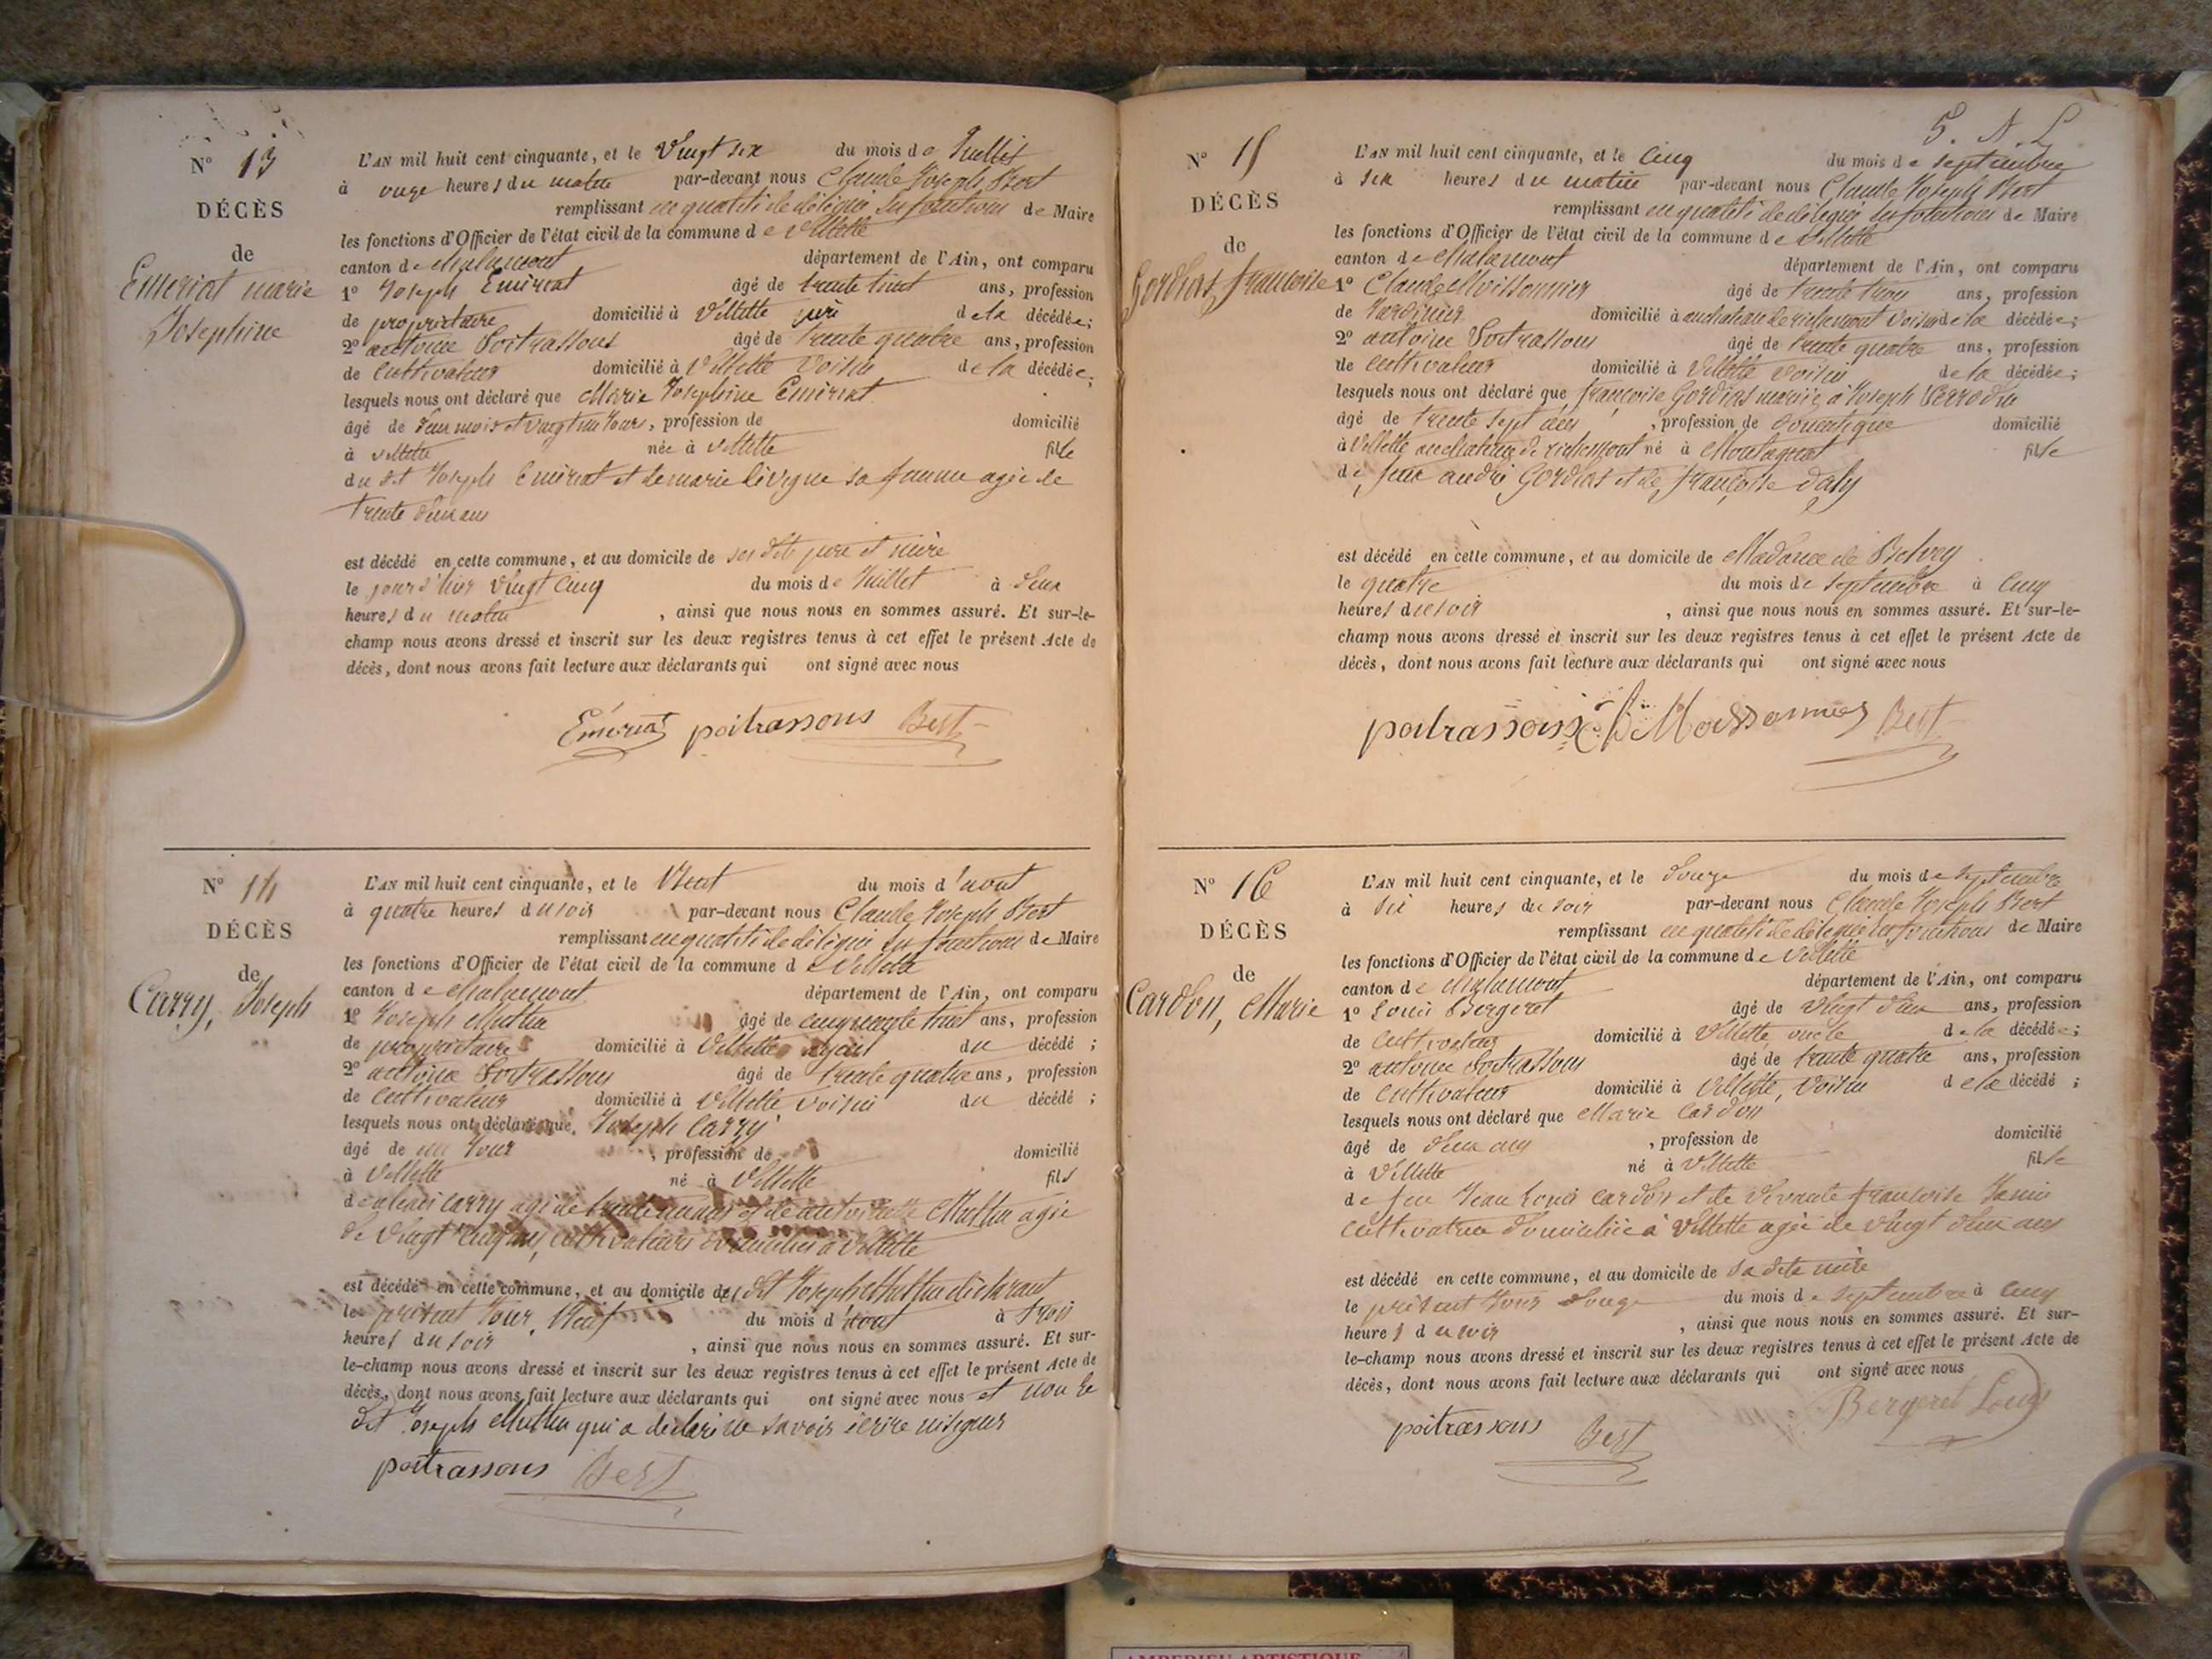 N° 13
DÉCÈS
de
Emeriat marie
Josephine
L'AN mil huit cent cinquante, et le Vingt six du mois de Juillet
à onze heures du matin par-devant nous Claude Joseph Bert
remplissant en qualité de délégué les fonctions de Maire
les fonctions d'Officier de l'état civil de la commune de Villette
canton de Chalamont département de l'Ain, ont comparu
1° Joseph Emeriat âgé de trente huit ans, profession
de propriétaire domicilié à Villette père de la décédée;
2° antoine Poitrassons âgé de trente quatre ans, profession
de Cultivateur domicilié à Villette Voisin de la décédée;
lesquels nous ont déclaré que Marie Josephine Emeriat
âgé de deux mois et vingt un jours, profession de domicilié
à Villette née à Villette fille
du dit Joseph Emeriat et de marie sa femme agée de
trente deux ans
est décédé en cette commune, et au domicile de ses dits père et mère
le jour d'hier Vingt Cinq du mois de Juillet à deux
heures du matin , ainsi que nous nous en sommes assuré. Et sur-le-
champ nous avons dressé et inscrit sur les deux registres tenus à cet effet le présent Acte de
décès, dont nous avons fait lecture aux déclarants qui ont signé avec nous
Emeriat poitrassons Bert
N° 14
DÉCÈS
de
Carry, Joseph
L'AN mil huit cent cinquante, et le Neuf du mois d'aout
à quatre heures du soir par-devant nous Claude Joseph Bert
remplissant en qualité de délégué les fonctions de Maire
les fonctions d'Officier de l'état civil de la commune de Villette
canton de Chalamont département de l'Ain, ont comparu
1° Joseph Muthu âgé de cinquante huit ans, profession
de propriétaire domicilié à Villette ayeul du décédé ;
2° antoine Poitrassons âgé de trente quatre ans, profession
de Cultivateur domicilié à Villette Voisin du décédé ;
lesquels nous ont déclaré que Joseph Carry
âgé de un Jour , profession de domicilié
à Villette né à Villette fils
de Carry agé de et de antoinette Muthu agée
de Vingt cinq ans, cultivateurs domiciliés à Villette
est décédé en cette commune, et au domicile de dit Joseph Muthu déclarant
le présent Jour Neuf du mois d'aout à trois
heures du soir , ainsi que nous nous en sommes assuré. Et sur-
le-champ nous avons dressé et inscrit sur les deux registres tenus à cet effet le présent Acte de
décès, dont nous avons fait lecture aux déclarants qui ont signé avec nous et non le
dit Joseph Muthu qui a déclaré ne savoir écrire ni signer
poitrassons Bert
5. N. L
N° 15
DÉCÈS
de
Gordiat, francoise
L'AN mil huit cent cinquante, et le Cinq du mois de septembre
à six heures du matin par-devant nous Claude Joseph Bert
remplissant en qualité de délégué les fonctions de Maire
les fonctions d'Officier de l'état civil de la commune de Villette
canton de Chalamont département de l'Ain, ont comparu
1° Claude Moissonnier âgé de trente trois ans, profession
de Jardinier domicilié à au chateau de richemont Voisin de la décédée;
2° antoine Poitrassons âgé de trente quatre ans, profession
de Cultivateur domicilié à Villette Voisin de la décédée;
lesquels nous ont déclaré que françoise Gordiat mariée à Joseph
âgé de trente sept ans , profession de Domestique domicilié
à Villette au chateau de richemont né à Montagnat fille
de feu andré Gordiat et de françoise Daly
est décédé en cette commune, et au domicile de Madame de Belvey
le quatre du mois de septembre à Cinq
heures du soir , ainsi que nous nous en sommes assuré. Et sur-le-
champ nous avons dressé et inscrit sur les deux registres tenus à cet effet le présent Acte de
décès, dont nous avons fait lecture aux déclarants qui ont signé avec nous
poitrassons Moissonnier Bert
N° 16
DÉCÈS
de
Cardon, Marie
L'AN mil huit cent cinquante, et le douze du mois de septembre
à six heures du soir par-devant nous Claude Joseph Bert
remplissant en qualité de délégué les fonctions de Maire
les fonctions d'Officier de l'état civil de la commune de Villette
canton de Chalamont département de l'Ain, ont comparu
1° Louis Bergeret âgé de Vingt deux ans, profession
de Cultivateur domicilié à Villette oncle de la décédée;
2° antoine Poitrassons âgé de trente quatre ans, profession
de Cultivateur domicilié à Villette, Voisin de la décédé ;
lesquels nous ont déclaré que Marie Cardon
âgé de deux ans , profession de domicilié
à Villette né à Villette fille
de feu Jean Louis Cardon et de Vivante francoise Janin
cultivatrice domiciliée à Villette agée de Vingt deux ans
est décédé en cette commune, et au domicile de sa dite mère
le présent Jour douze du mois de septembre à Cinq
heures du soir , ainsi que nous nous en sommes assuré. Et sur-
le-champ nous avons dressé et inscrit sur les deux registres tenus à cet effet le présent Acte de
décès, dont nous avons fait lecture aux déclarants qui ont signé avec nous
poitrassons Bert Bergeret Louis
AMBERIEU ARTISTIQUE